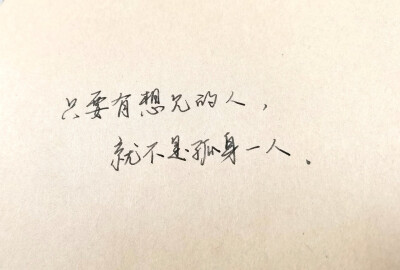 只要有想见的人，
就不是孤身一人．